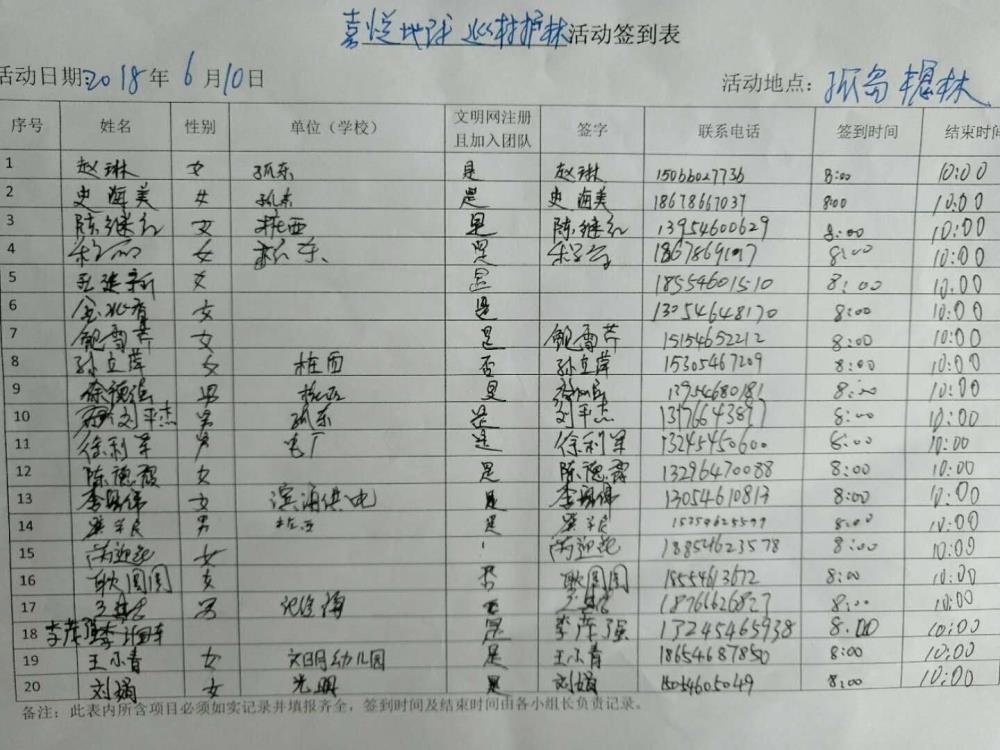 嘉悦地球 巡林护林活动签到表
活动日期:2018年6月10日 活动地点: 孤岛槐林
序号 姓名 性别 单位（学校） 文明网注册且加入团队 签字 联系电话 签到时间 结束时间
1 赵琳 女 孤东 是 赵琳 15066027736 8:00 10:00
2 史海美 女 孤东 是 史海美 18678667037 8:00 10:00
3 陈继红 女 桩西 是 陈继红 13954600629 8:00 10:00
4 女 是 8:00 10:00
5 女 是 18554601510 8:00 10:00
6 女 是 13054648170 8:00 10:00
7 鲍雪芹 女 是 鲍雪芹 15154652212 8:00 10:00
8 孙立萍 女 桩西 否 孙立萍 15305467209 8:00 10:00
9 徐德强 男 桩西 是 13954680181 8:00 10:00
10 刘平杰 男 孤东 是 刘平杰 8:00 10:00
11 徐利军 男 是 徐利军 13245450600 8:00 10:00
12 陈德霞 女 是 陈德霞 13296470088 8:00 10:00
13 女 滨海供电 是 13054610813 8:00 10:00
14 男 是 8:00 10:00
15 女 18854623578 8:00 10:00
16 耿圆圆 女 耿圆圆 15554613672 8:00 10:00
17 男 18766626827 8:00 10:00
18 李茂强 是 李茂强 13245465938 8:00 10:00
19 王小青 女 文明幼儿园 是 王小青 18654687850 8:00 10:00
20 刘娟 女 光明 是 刘娟 15054605049 8:00 10:00
备注：此表内所含项目必须如实记录并填报齐全，签到时间及结束时间由各小组长负责记录。